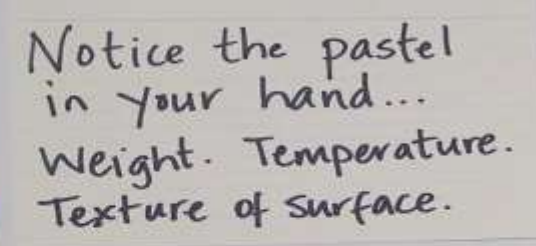 Notice the pastel
in your hand...
Weight. Temperature.
Texture of surface.